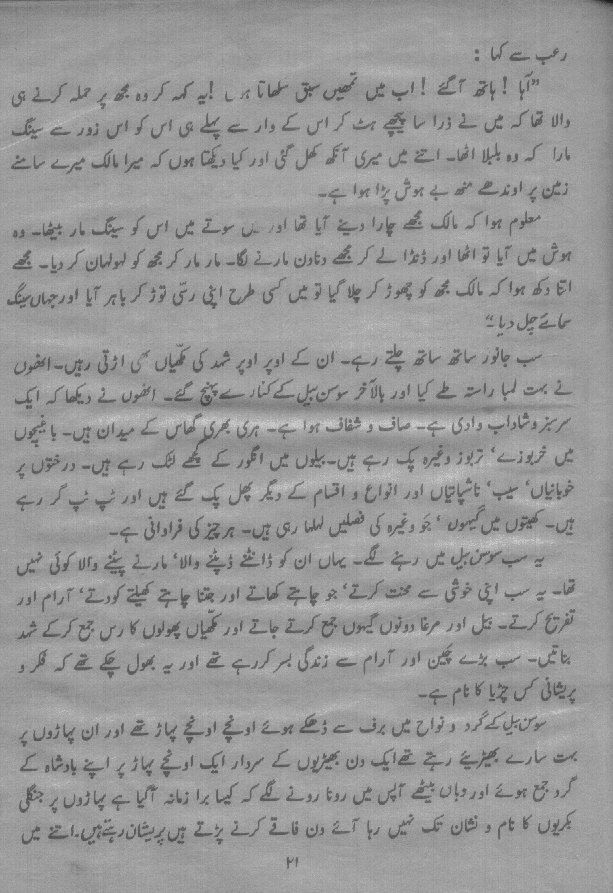 رعب سے کہا :
”آہا ! ہاتھ آگئے ! اب میں تمھیں سبق سکھاتا ہوں ! یہ کہہ کر وہ مجھ پر حملہ کرنے ہی
والا تھا کہ میں نے ذرا سا پیچھے ہٹ کر اس کے وار سے پہلے ہی اس کو اس زور سے سینگ
مارا کہ وہ بلبلا اٹھا۔ اتنے میں میری آنکھ کھل گئی اور کیا دیکھتا ہوں کہ میرا مالک میرے سامنے
زمین پر اوندھے منھ بے ہوش پڑا ہوا ہے۔
معلوم ہوا کہ مالک مجھے چارا دینے آیا تھا اور میں سوتے میں اس کو سینگ مار بیٹھا۔ وہ
ہوش میں آیا تو اٹھا اور ڈنڈا لے کر مجھے دنادن مارنے لگا۔ مار مار کر مجھ کو لہولہان کر دیا۔ مجھے
اتنا دکھ ہوا کہ مالک مجھ کو چھوڑ کر چلا گیا تو میں کسی طرح اپنی رسّی توڑ کر باہر آیا اور جہاں سینگ
سمائے چل دیا۔“
سب جانور ساتھ ساتھ چلتے رہے۔ ان کے اوپر اوپر شہد کی مکھّیاں بھی اڑتی رہیں۔ انھوں
نے بہت لمبا راستہ طے کیا اور بالآخر سوسن بیل کے کنارے پہنچ گئے۔ انھوں نے دیکھا کہ ایک
سرسبز و شاداب وادی ہے۔ صاف و شفاف ہوا ہے۔ ہری بھری گھاس کے میدان ہیں۔ باغیچوں
میں خربوزے، تربوز وغیرہ پک رہے ہیں۔ بیلوں میں انگور کے گچھے لٹک رہے ہیں۔ درختوں پر
خوبانیاں، سیب، ناشپاتیاں اور انواع و اقسام کے دیگر پھل پک گئے ہیں اور ٹپ ٹپ گر رہے
ہیں۔ کھیتوں میں گیہوں ، جَو وغیرہ کی فصلیں لہلہا رہی ہیں۔ ہر چیز کی فراوانی ہے۔
یہ سب سوسن بیل میں رہنے لگے۔ یہاں ان کو ڈانٹنے ڈپٹنے والا، مارنے پیٹنے والا کوئی نہیں
تھا۔ یہ سب اپنی خوشی سے محنت کرتے، جو چاہتے کھاتے اور جتنا چاہتے کھیلتے کودتے، آرام اور
تفریح کرتے۔ بیل اور مرغا دونوں گیہوں جمع کرتے جاتے اور مکھّیاں پھولوں کا رس جمع کر کے شہد
بناتیں۔ سب بڑے چین اور آرام سے زندگی بسر کر رہے تھے اور یہ بھول چکے تھے کہ فکر و
پریشانی کس چڑیا کا نام ہے۔
سوسن بیل کے گرد و نواح میں برف سے ڈھکے ہوئے اونچے اونچے پہاڑ تھے اور ان پہاڑوں پر
بہت سارے بھیڑیئے رہتے تھے ایک دن بھیڑیوں کے سردار ایک اونچے پہاڑ پر اپنے بادشاہ کے
گرد جمع ہوئے اور وہاں بیٹھے آپس میں رونا رونے لگے کہ کیسا برا زمانہ آگیا ہے پہاڑوں پر جنگلی
بکریوں کا نام و نشان تک نہیں رہا آئے دن فاقے کرنے پڑتے ہیں پریشان رہتے ہیں۔ اتنے میں
۲۱